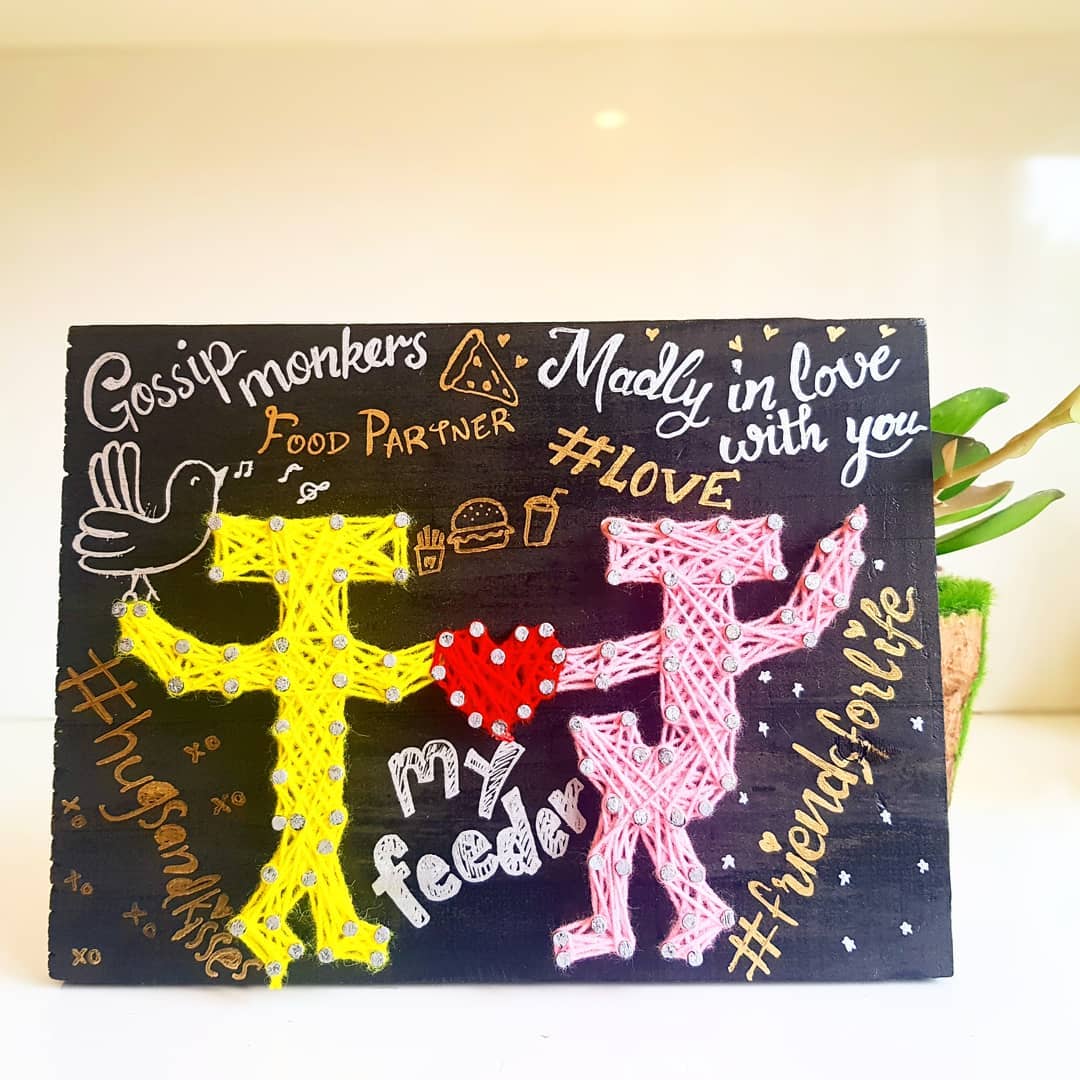 Gossip monkers
FOOD PARTNER
Madly in love
with you
#LOVE
#hugsandkisses
xo
xo
xo
xo
xo
xo
my
feeder
#friendsforlife